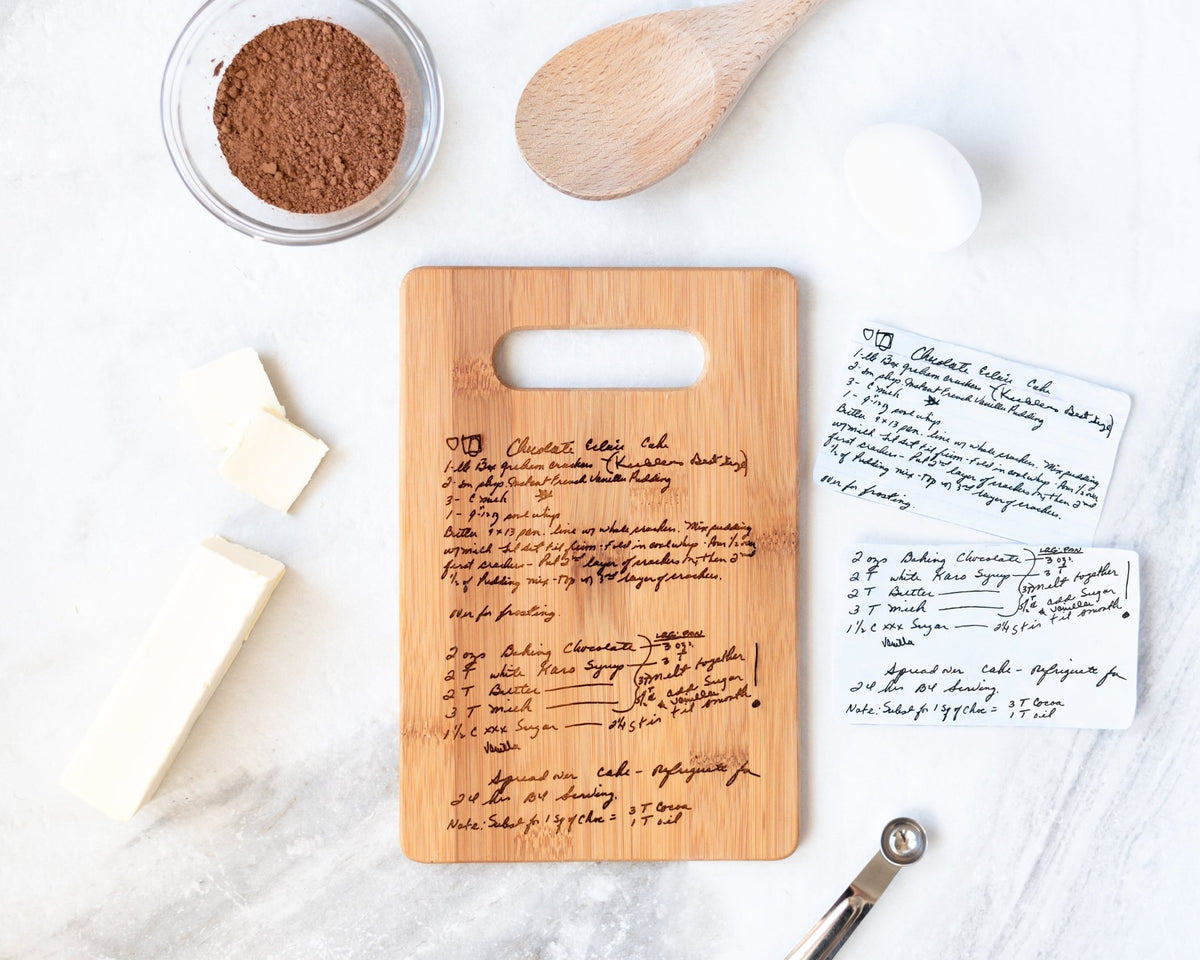 Chocolate Eclair Cake
1-lb Box graham crackers (Keeblers Best Size)
2-sm pkgs. Instant French Vanilla Pudding
3- C milk
1- 9-12 oz cool whip
Butter 9x13 pan. line w/ whole crackers. Mix pudding
w/ milk - let set til firm - Fold in cool whip - Pour 1/2 over
first crackers - Put 2nd layer of crackers on, then 2nd
1/2 of Pudding mix - Top w/ 3rd layer of crackers.
over for frosting.
2 ozs Baking Chocolate
2 T white Karo Syrup
2 T Butter
3 T Milk
1 1/2 C xxx Sugar
Vanilla
LRG. PAN
3 ozs.
3 T
3T melt together
add Sugar
& vanilla
2 1/4 stir til smooth
Spread over cake - Refrigerate for
24 hrs B4 Serving.
Note: Subst for 1 Sq of Choc = 3 T Cocoa
1 T oil
Chocolate Eclair Cake
1-lb Box graham crackers (Keeblers Best Size)
2-sm pkgs. Instant French Vanilla Pudding
3- C milk
1- 9-12 oz cool whip
Butter 9x13 pan. line w/ whole crackers. Mix pudding
w/ milk - let set til firm - Fold in cool whip - Pour 1/2 over
first crackers - Put 2nd layer of crackers on, then 2nd
1/2 of Pudding mix - Top w/ 3rd layer of crackers.
over for frosting.
2 ozs Baking Chocolate
2 T white Karo Syrup
2 T Butter
3 T Milk
1 1/2 C xxx Sugar
Vanilla
LRG. PAN
3 ozs.
3 T
3T melt together
add Sugar
& vanilla
2 1/4 stir til smooth
Spread over cake - Refrigerate for
24 hrs B4 Serving.
Note: Subst for 1 Sq of Choc = 3 T Cocoa
1 T oil